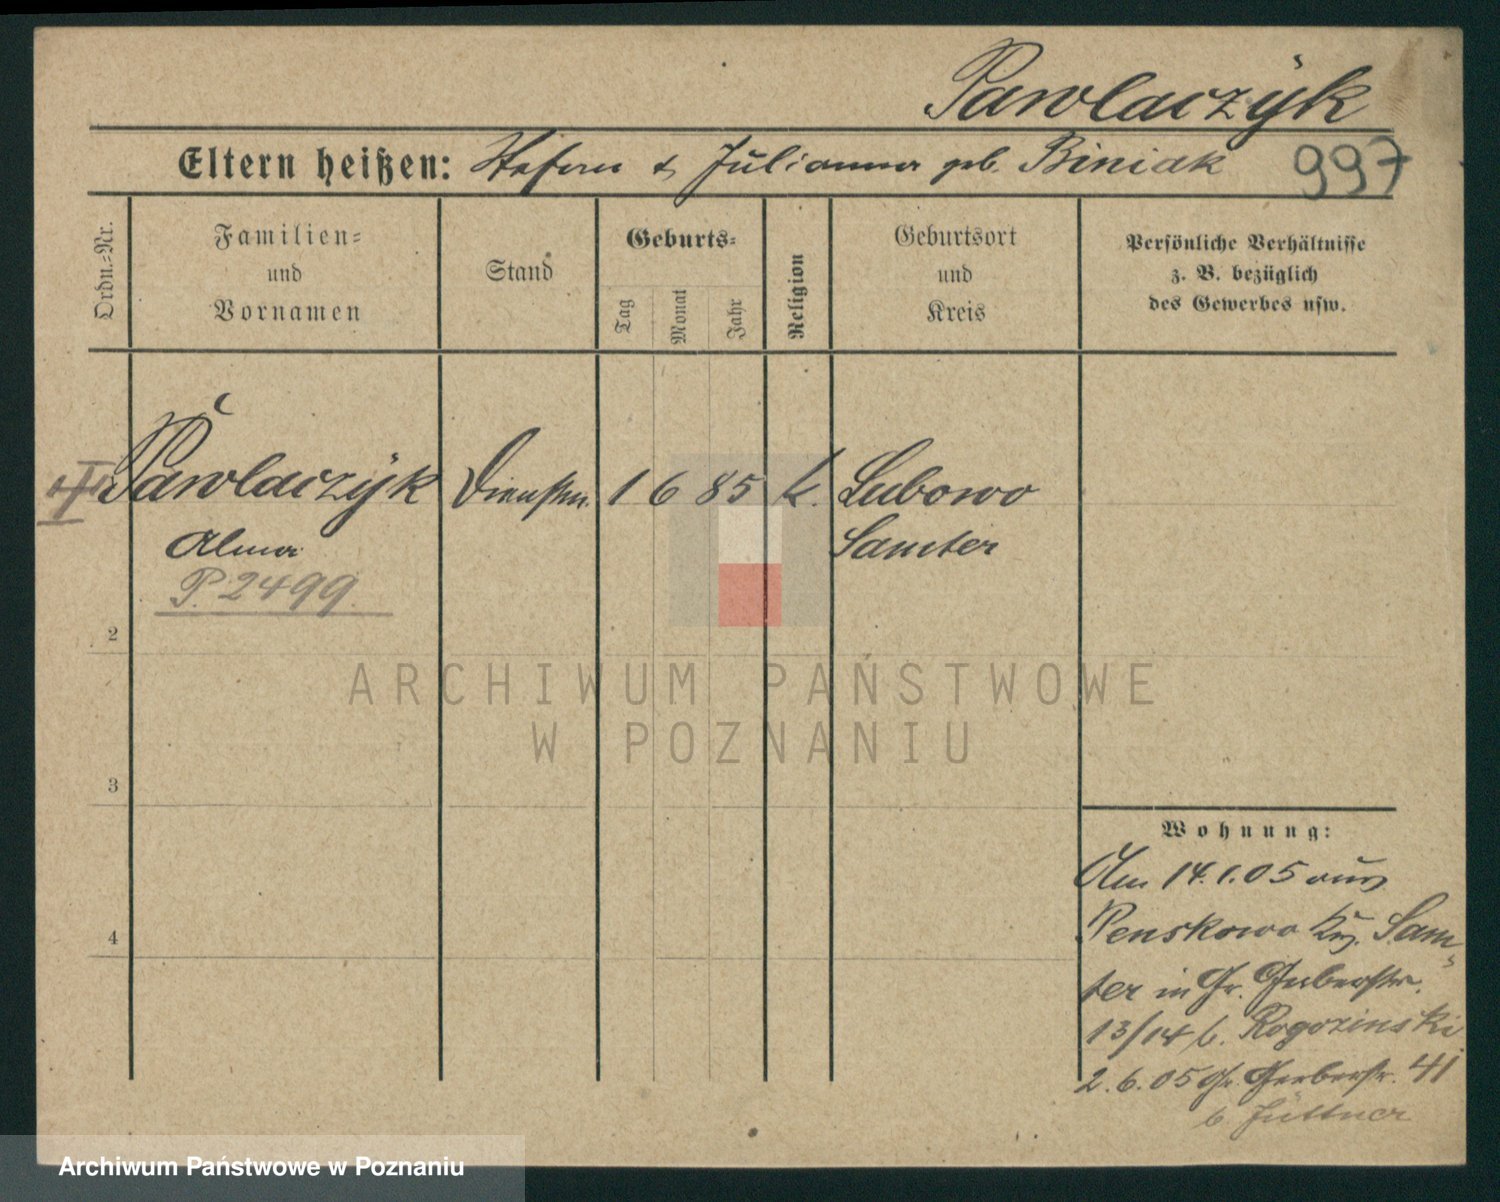 Pawlaczÿk
Eltern heißen: Stefan & Julianna geb. Biniak 997
Ordn.-Nr.
Familien-
und
Vornamen
Stand
Geburts-
Tag
Monat
Jahr
Religion
Geburtsort
und
Kreis
Persönliche Verhältnisse
z. B. bezüglich
des Gewerbes usw.
Pawlaczÿk Dienstm. 1 6 85 k. Lubowo
Alma Samter
P. 2499.
2
3
4
Wohnung:
Am 14.1.05 aus
Penskowo Krs. Sam-
ter in Gr. Gerberstr.
13/14 b. Rogozinski
2.6.05 Gr. Gerberstr. 41
b Jüttner
ARCHIWUM PAŃSTWOWE
W POZNANIU
Archiwum Państwowe w Poznaniu